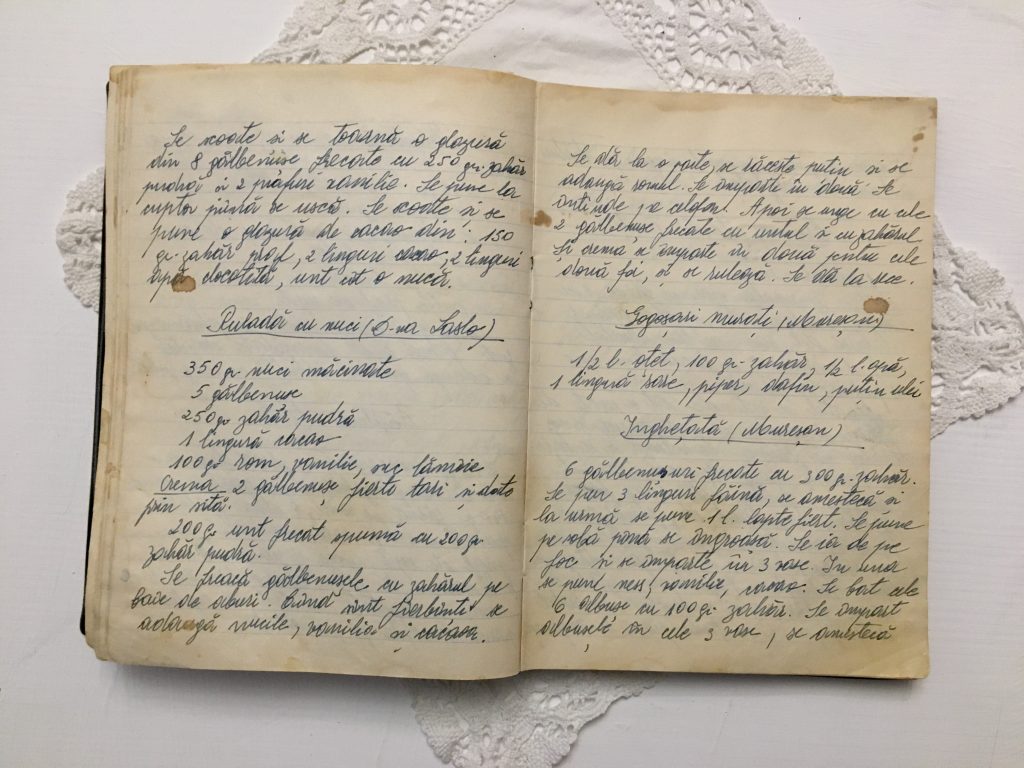 Se scoate si se toarnă o glazură
din 8 gălbenuse frecate cu 250 gr. zahăr
pudră si 2 prafuri vanilie. Se pune la
cuptor pînă se uscă. Se scoate si se
pune o glazură de cacao din: 150
gr. zahăr praf, 2 linguri cacao, 2 linguri
apă clocotită, unt cît o nucă.
Ruladă cu nuci (D-na Laslo)
350 gr. nuci măcinate
5 gălbenuse
250 gr. zahăr pudră
1 lingură cacao
100 gr. rom, vanilie, suc lămîie
Crema 2 gălbenușe fierte tari și date
prin sită.
200 gr. unt frecat spumă cu 200 gr.
zahăr pudră.
Se freacă gălbenusele cu zahărul pe
baie de aburi. Cînd sînt fierbinti se
adaugă nucile, vanilia si cacaoa.
Se dă la o parte, se răceste putin si se
adaugă romul. Se împarte în două. Se
întinde pe celofan. Apoi se unge cu cele
2 gălbenuse, frecate cu untul si cu zahărul
Si crema se împarte în două pentru cele
două foi, si se rulează. Se dă la rece.
Gogoșari murați (Mureșan)
1/2 l. otet, 100 gr. zahăr, 1/2 l. apă,
1 lingură sare, piper, dafin, putin ulei
Înghețată (Mureșan)
6 gălbenusuri frecate cu 300 gr. zahăr.
Se pun 3 linguri făină, se amestecă si
la urmă se pune 1 l. lapte fiert. Se pune
pe plită pînă se îngroasă. Se ia de pe
foc si se împarte în 3 vase. In una
se pune nes, vanilie, cacao. Se bat cele
6 albuse cu 100 gr. zahăr. Se împart
albusele în cele 3 vase, se amestecă